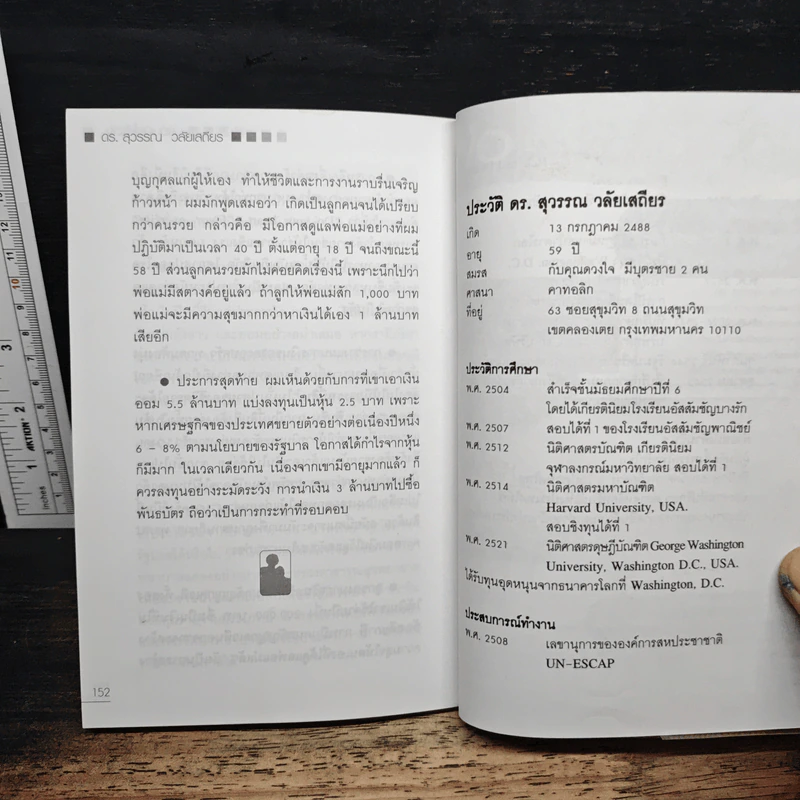 ดร. สุวรรณ วลัยเสถียร
บุญกุศลแก่ผู้ให้เอง ทำให้ชีวิตและการงานราบรื่นเจริญ
ก้าวหน้า ผมมักพูดเสมอว่า เกิดเป็นลูกคนจนได้เปรียบ
กว่าคนรวย กล่าวคือ มีโอกาสดูแลพ่อแม่อย่างที่ผม
ปฏิบัติมาเป็นเวลา 40 ปี ตั้งแต่อายุ 18 ปี จนถึงขณะนี้
58 ปี ส่วนลูกคนรวยมักไม่ค่อยคิดเรื่องนี้ เพราะนึกไปว่า
พ่อแม่มีสตางค์อยู่แล้ว ถ้าลูกให้พ่อแม่สัก 1,000 บาท
พ่อแม่จะมีความสุขมากกว่าหาเงินได้เอง 1 ล้านบาท
เสียอีก
● ประการสุดท้าย ผมเห็นด้วยกับการที่เขาเอาเงิน
ออม 5.5 ล้านบาท แบ่งลงทุนเป็นหุ้น 2.5 บาท เพราะ
หากเศรษฐกิจของประเทศขยายตัวอย่างต่อเนื่องปีหนึ่ง
6 – 8% ตามนโยบายของรัฐบาล โอกาสได้กำไรจากหุ้น
ก็มีมาก ในเวลาเดียวกัน เนื่องจากเขามีอายุมากแล้ว ก็
ควรลงทุนอย่างระมัดระวัง การนำเงิน 3 ล้านบาทไปซื้อ
พันธบัตร ถือว่าเป็นการกระทำที่รอบคอบ
152
ประวัติ ดร. สุวรรณ วลัยเสถียร
เกิด 13 กรกฎาคม 2488
อายุ 59 ปี
สมรส กับคุณดวงใจ มีบุตรชาย 2 คน
ศาสนา คาทอลิก
ที่อยู่ 63 ซอยสุขุมวิท 8 ถนนสุขุมวิท
เขตคลองเตย กรุงเทพมหานคร 10110
ประวัติการศึกษา
พ.ศ. 2504 สำเร็จชั้นมัธยมศึกษาปีที่ 6
โดยได้เกียรตินิยมโรงเรียนอัสสัมชัญบางรัก
พ.ศ. 2507 สอบได้ที่ 1 ของโรงเรียนอัสสัมชัญพาณิชย์
พ.ศ. 2512 นิติศาสตรบัณฑิต เกียรตินิยม
จุฬาลงกรณ์มหาวิทยาลัย สอบได้ที่ 1
พ.ศ. 2514 นิติศาสตรมหาบัณฑิต
Harvard University, USA.
สอบชิงทุนได้ที่ 1
พ.ศ. 2521 นิติศาสตรดุษฎีบัณฑิต George Washington
University, Washington D.C., USA.
ได้รับทุนอุดหนุนจากธนาคารโลกที่ Washington, D.C.
ประสบการณ์ทำงาน
พ.ศ. 2508 เลขานุการขององค์การสหประชาชาติ
UN-ESCAP